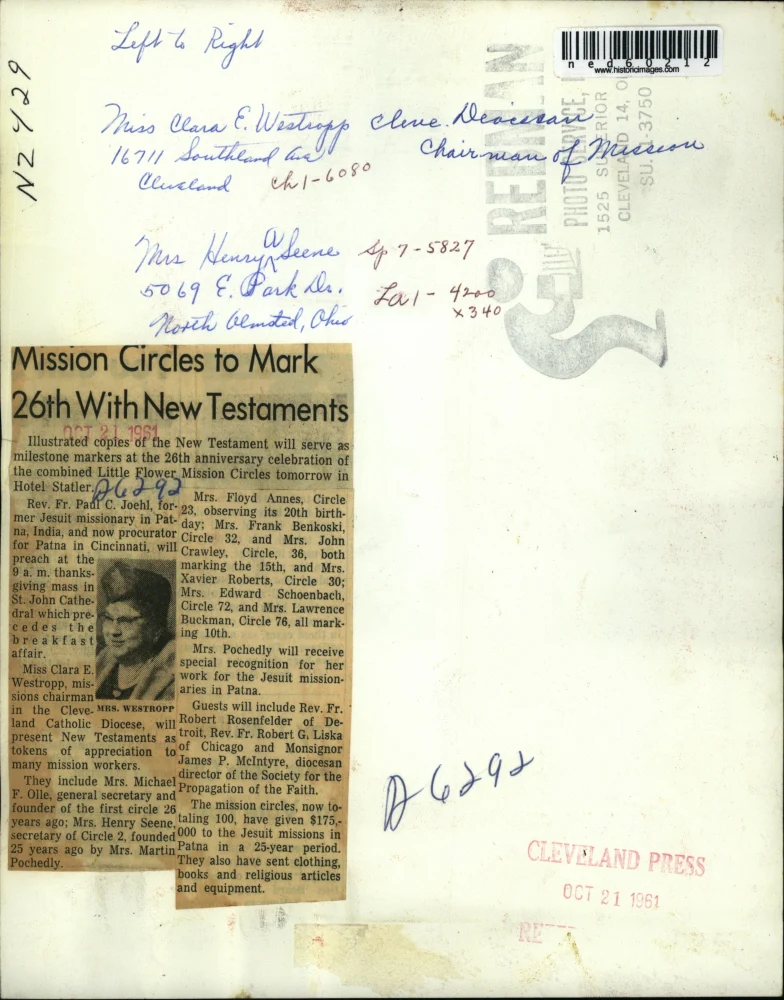 Left to Right
ned60212
www.historicimages.com
Miss Clara E. Westropp Cleve. Diocesan
16711 Southland Ave Chairman of Mission
Cleveland Ch1-6080
N2429
PHOTO SERVICE,
1525 SUPERIOR
CLEVELAND 14, O
SU. 1-3750
Mrs Henry A Seene Sp 7-5827
5069 E. Park Dr. La1-4200
x340
North Olmsted, Ohio
Mission Circles to Mark
26th With New Testaments
OCT 21 1961
Illustrated copies of the New Testament will serve as
milestone markers at the 26th anniversary celebration of
the combined Little Flower Mission Circles tomorrow in
Hotel Statler.
D6292
Rev. Fr. Paul C. Joehl, for-
mer Jesuit missionary in Pat-
na, India, and now procurator
for Patna in Cincinnati, will
preach at the
9 a. m. thanks-
giving mass in
St. John Cathe-
dral which pre-
cedes the
breakfast
affair.
Miss Clara E.
Westropp, mis-
sions chairman
in the Cleve-
MRS. WESTROPP
land Catholic Diocese, will
present New Testaments as
tokens of appreciation to
many mission workers.
They include Mrs. Michael
F. Olle, general secretary and
founder of the first circle 26
years ago; Mrs. Henry Seene,
secretary of Circle 2, founded
25 years ago by Mrs. Martin
Pochedly.
Mrs. Floyd Annes, Circle
23, observing its 20th birth-
day; Mrs. Frank Benkoski,
Circle 32, and Mrs. John
Crawley, Circle, 36, both
marking the 15th, and Mrs.
Xavier Roberts, Circle 30;
Mrs. Edward Schoenbach,
Circle 72, and Mrs. Lawrence
Buckman, Circle 76, all mark-
ing 10th.
Mrs. Pochedly will receive
special recognition for her
work for the Jesuit mission-
aries in Patna.
Guests will include Rev. Fr.
Robert Rosenfelder of De-
troit, Rev. Fr. Robert G. Liska
of Chicago and Monsignor
James P. McIntyre, diocesan
director of the Society for the
Propagation of the Faith.
The mission circles, now to-
taling 100, have given $175,-
000 to the Jesuit missions in
Patna in a 25-year period.
They also have sent clothing,
books and religious articles
and equipment.
D6292
CLEVELAND PRESS
OCT 21 1961